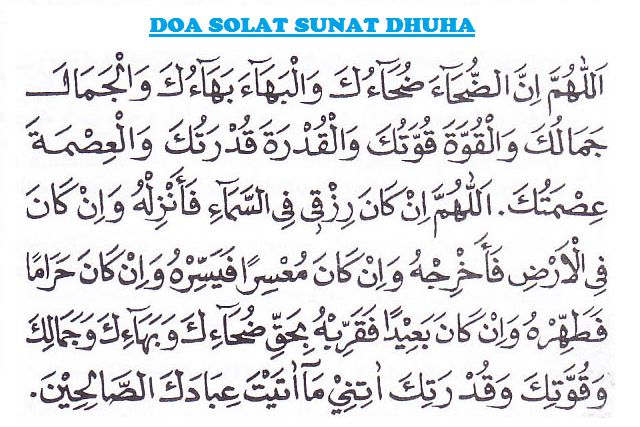 DOA SOLAT SUNAT DHUHA
اَللّٰهُمَّ اِنَّ الضُّحَآءَ ضُحَآءُكَ وَالْبَهَآءَ بَهَآءُكَ وَالْجَمَالَ
جَمَالُكَ وَالْقُوَّةَ قُوَّتُكَ وَالْقُدْرَةَ قُدْرَتُكَ وَالْعِصْمَةَ
عِصْمَتُكَ. اَللّٰهُمَّ اِنْ كَانَ رِزْقِيْ فِى السَّمَآءِ فَأَنْزِلْهُ وَاِنْ كَانَ
فِى الْاَرْضِ فَأَخْرِجْهُ وَاِنْ كَانَ مُعْسِرًا فَيَسِّرْهُ وَاِنْ كَانَ حَرَامًا
فَطَهِّرْهُ وَاِنْ كَانَ بَعِيْدًا فَقَرِّبْهُ بِحَقِّ ضُحَآءِكَ وَبَهَآءِكَ وَجَمَالِكَ
وَقُوَّتِكَ وَقُدْرَتِكَ اٰتِنِيْ مَآ اٰتَيْتَ عِبَادَكَ الصَّالِحِيْنَ.